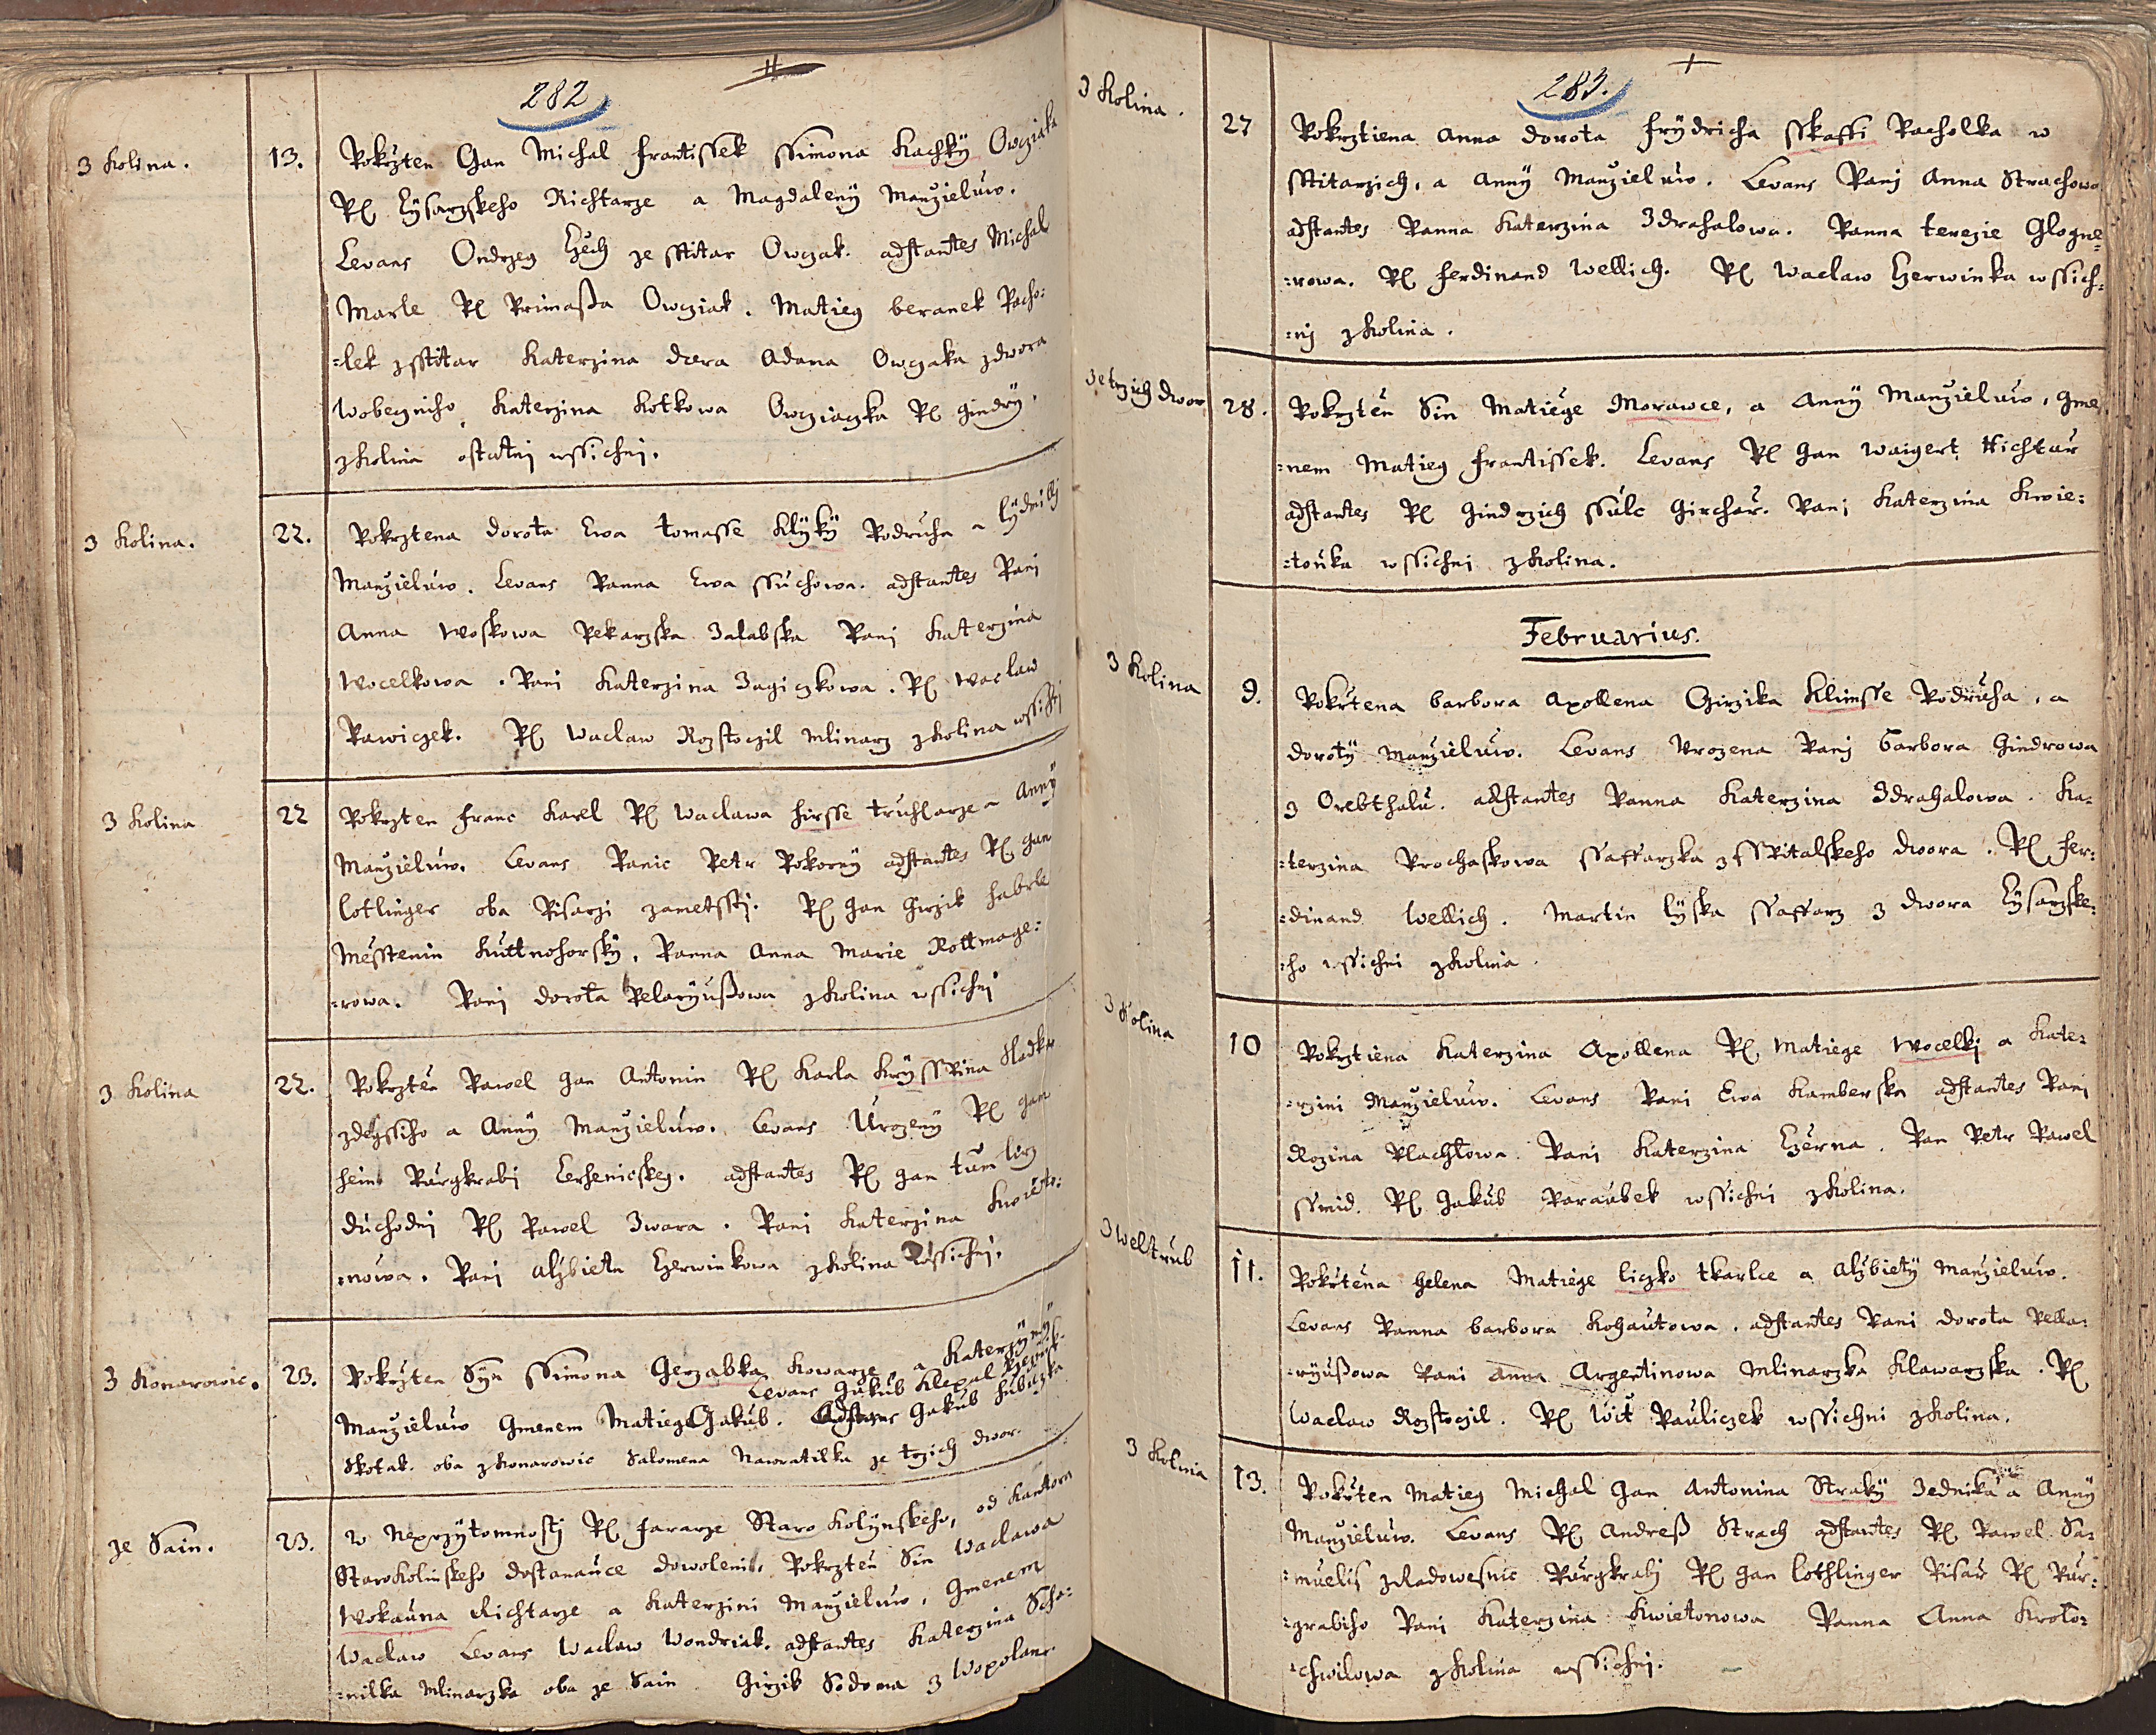 282
3 Kolina. 13. Pokrzten Gan Michal Frantissek Ssimona Kachky Owcziaka
P. Lysarzskeho Richtarze a Magdaleny Manzieluw.
Levans Ondrzeg Czech ze Sstitar Owczak. adstantes Michal
Marle P. Primassa Owcziak. Matieg beranek Pacho:
:lek z Sstitar Katerzina dcera Adama Owczaka z dwora
Wobecniho, Katerzina Kotkowa Owcziaczka P. Gindry,
z Kolina ostatnj wssichnj.
3 Kolina. 22. Pokrztena dorota Ewa tomasse Klyky Podruha a lydmilly
Manzieluw. Levans Panna Ewa Ssuchowa. adstantes Panj
Anna Woskowa Pekarzska Zalabska Panj Katerzina
Wocelkowa. Pani Katerzina Zagiczkowa. P. Waclaw
Pawiczek. P. Waclaw Rozstoczil Mlinarz z Kolina wssichnj
3 Kolina 22 Pokrzten Franc Karel P. Waclawa Hirsse truhlarze a Anny
Manzieluw. Levans Panic Petr Pokorny adstantes P. Gan
Lotlinger oba Pisarzi zametsstj. P. Gan Girzik Haberle
Messtenin Kuttnohorsky, Panna Anna Marie Rottmage:
:rowa. Panj dorota Pelaryussowa z Kolina wssichnj
3 Kolina 22. Pokrzten Pawel Gan Antonin P. Karla Krysspina Sladka
zdegssiho a Anny Manzieluw. Levans Urozeny P. Gan
Hein Purgkrabj Cerhenicskey. adstantes P. Gan tumlirz
duchodnj P. Pawel Zwara. Panj Katerzina Kwieto:
:nowa. Panj Alzbieta Czerwinkowa z Kolina wssichnj.
3 Konarowic. 23. Pokrzten Syn Ssimona Gerzabka Kowarze, a Katerzyny
Levans Jakub Klepal
Manzieluw Gmenem Matieg Gakub. Adstans Gakub
Skotak. oba z Konarowic Salomena Nawratilka ze trzich dwor.
ze Sain. 23. W Neprzytomnostj P. Fararze Staro Kolynskeho, od Kantora
Starokolinskeho dostanauce dowoleni, Pokrzten Sin Waclawa
Wokauna Richtarze a Katerzini Manzieluw, Gmenem
Waclaw Levans Waclaw Wondriak. adstantes Katerzina Scho:
:nilka Mlinarzka oba ze Sain Girzik Sodoma 3 Wopolan.
283.
3 Kolina. 27 Pokrztiena Anna dorota Frydricha Sskaffi Pacholka w
Sstitarzich, a Anny Manzieluw. Levans Panj Anna Strachowa
adstantes Panna Katerzina Zdrahalowa. Panna terezie Glogne:
:rowa. P. Ferdinand Wellich. P. Waclaw Czerwinka wssich:
:nj z Kolina.
3 etrzich dwor 28. Pokrzten Sin Matiege Morawce, a Anny Manzieluw, Gme
:nem Matieg Frantissek. Levans P. Gan Waigert Richtar
adstantes P. Gindrzich Ssulc Girchar. Panj Katerzina Kwie:
:tonka wssichni z Kolina.
Februarius.
3 Kolina 9. Pokrtena barbora Apollena Girzika Klimsse Podruha, a
doroty Manzieluw. Levans Urozena Panj barbora Gindrowa
z Orebthalu. adstantes Panna Katerzina Zdrahalowa. Ka:
:terzina Prochaskowa Ssaffarzka z Sspitalskeho dwora. P. Fer:
:dinand Wellich. Martin Lyska Ssaffarz z dwora Lysarzske:
:ho wssichni z Kolina.
3 Kolina 10 Pokrztiena Katerzina Apollena P. Matiege Wocelkj a Kate:
:rzini Manzieluw. Levans Pani Ewa Kamberska adstantes Panj
Rozina Plachtowa. Panj Katerzina Czerna. Pan Petr Pawel
Ssmid. P. Gakub Paraubek wssichni z Kolina.
3 Weltrub 11. Pokrtena Helena Matiege liczko tkarlce a Alzbiety Manzieluw.
Levans Panna barbora Kohautowa. adstantes Pani dorota Pella:
:ryussowa Pani Anna Argentinowa Mlinarzka Klawarzska. P.
Waclaw Rozstoczil. P. Wit Pauliczek wssichni z Kolina.
3 Kolina 13. Pokrten Matieg Michal Gan Antonina Straky Zednika a Anny
Manzieluw. Levans P. Andress Strach adstantes P. Pawel Sa:
:muelis z Radowesnic Purgkrabj P. Gan Lothlinger Pisar P. Pur:
:grabiho Pani Katerzina Kwietonowa Panna Anna Kroto:
:chwilowa z Kolina wssichnj.